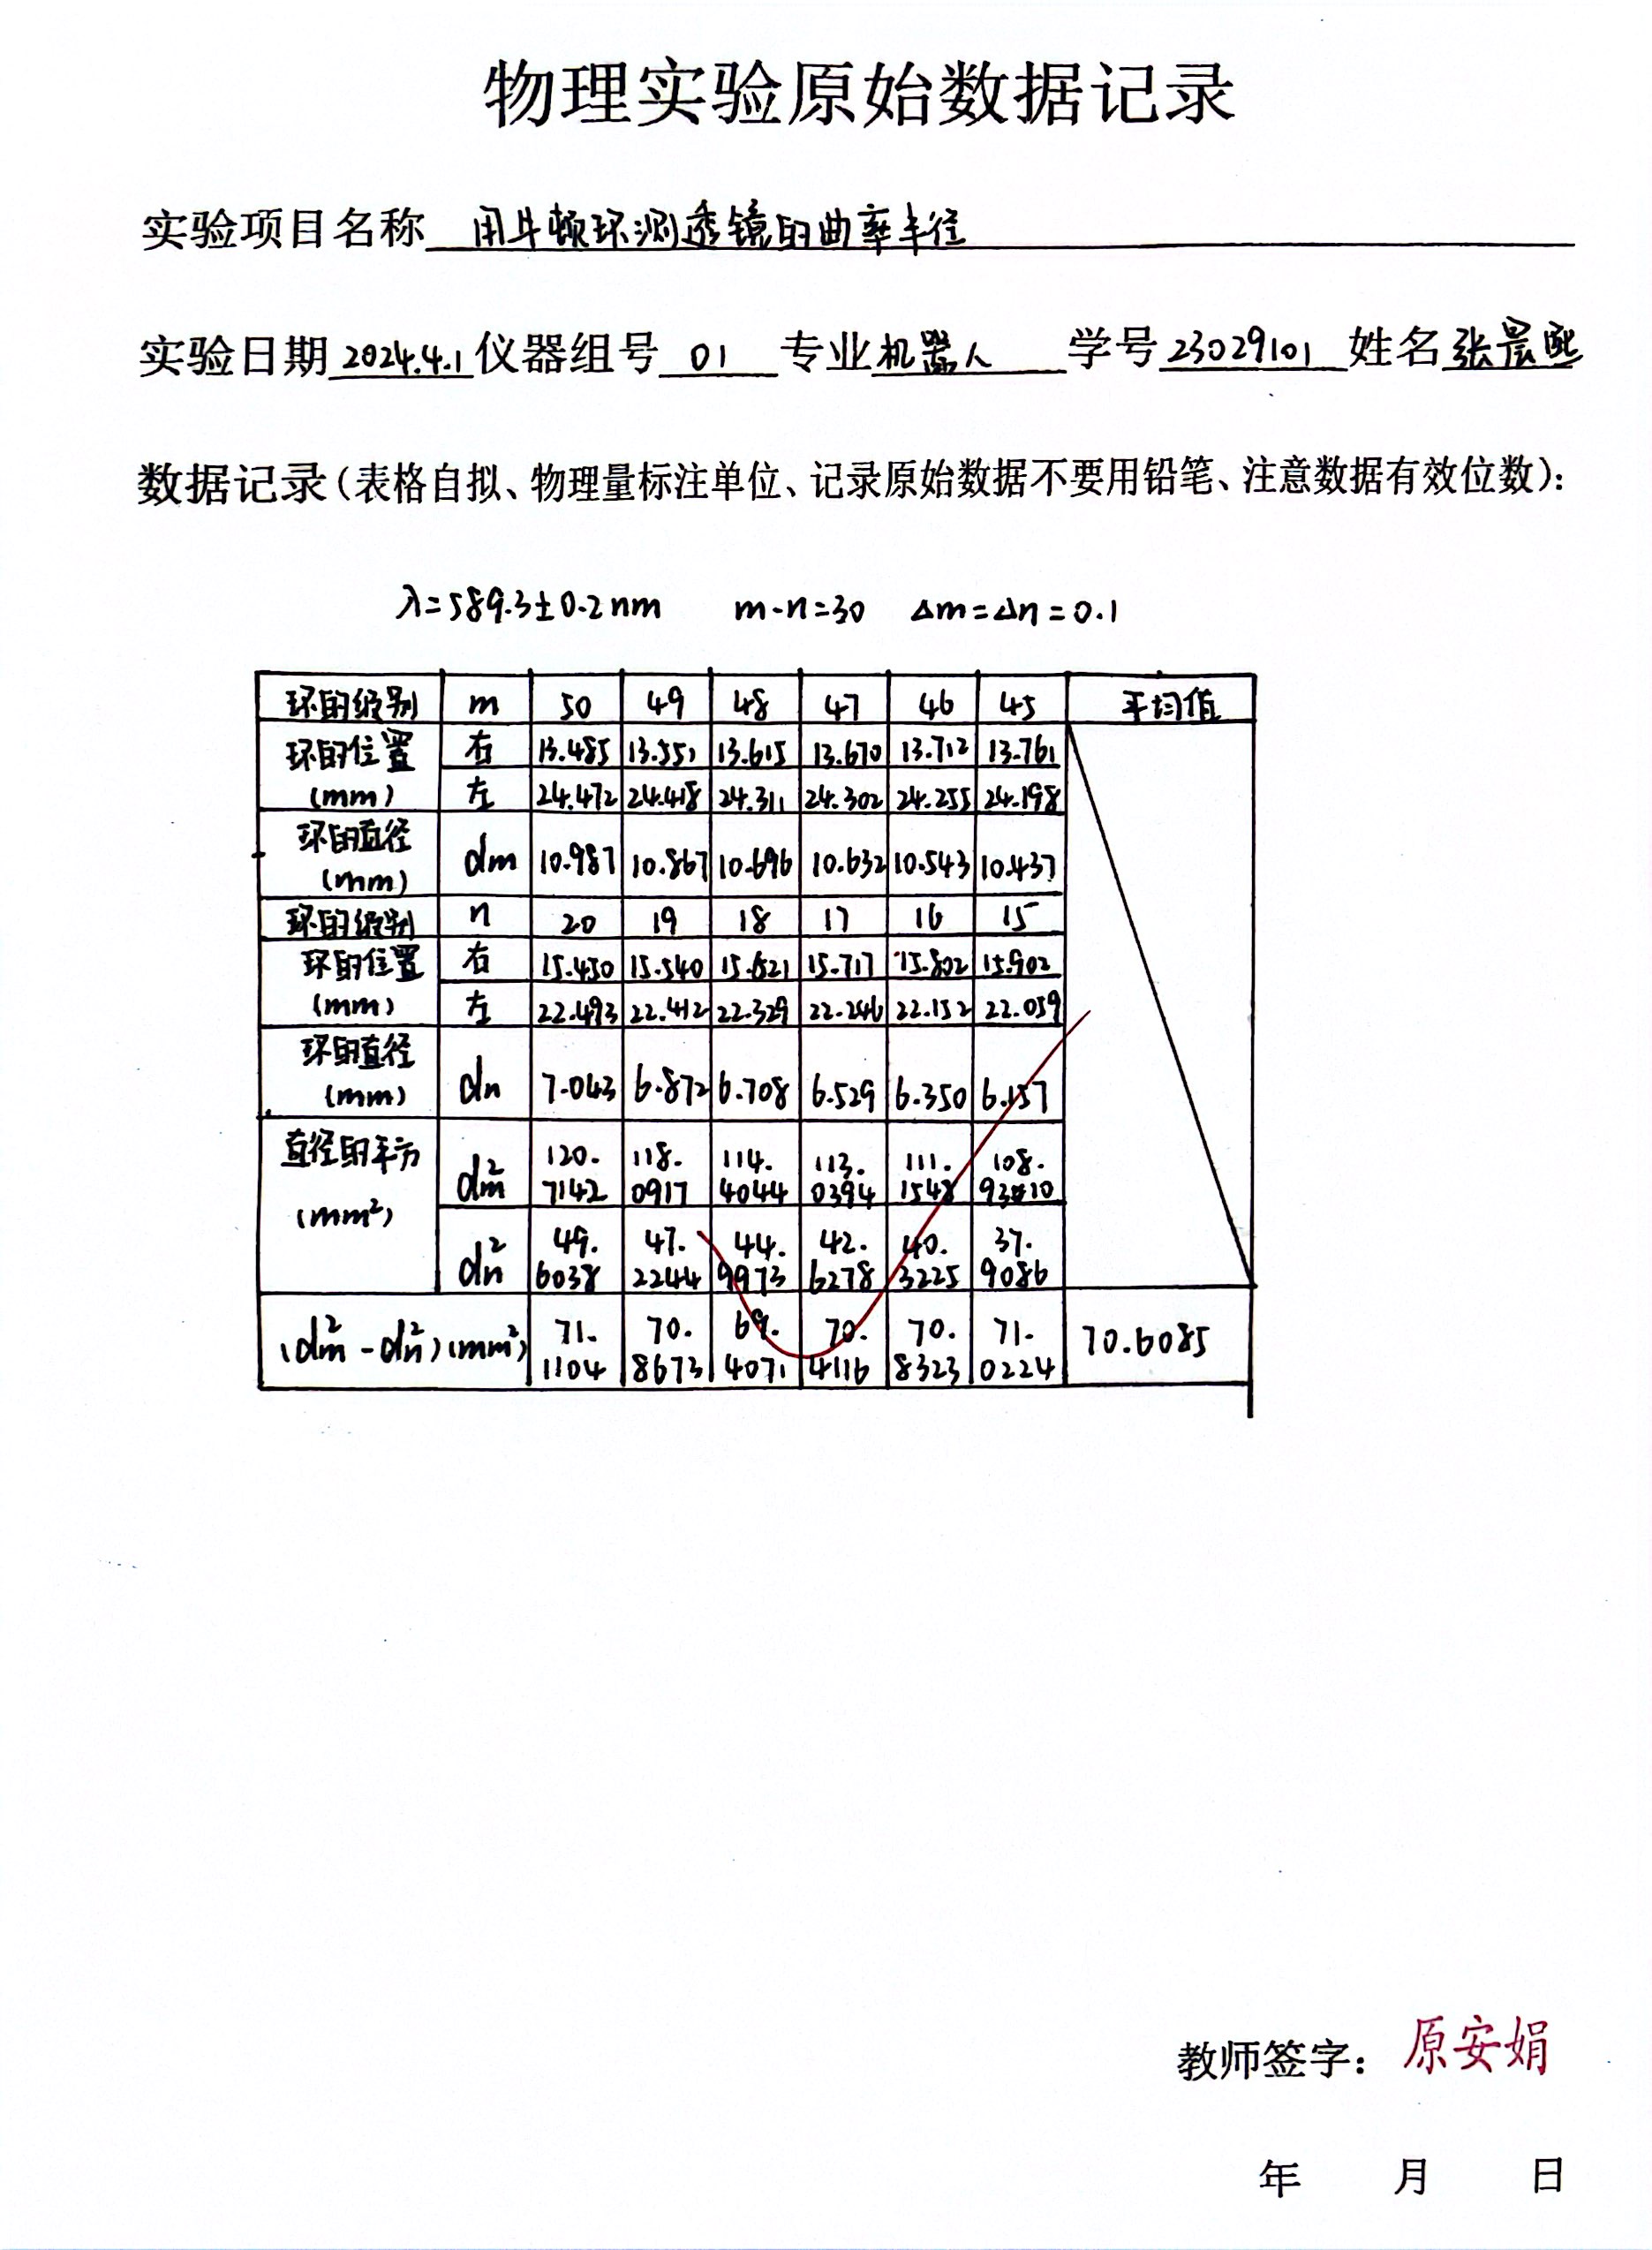 物理实验原始数据记录
实验项目名称 用牛顿环测透镜的曲率半径
实验日期 2024.4.1 仪器组号 01 专业 机器人 学号 23029101 姓名 张晨熙
数据记录(表格自拟、物理量标注单位、记录原始数据不要用铅笔、注意数据有效位数):
λ=589.3±0.2nm m-n=30 Δm=Δn=0.1
环的级别 m 50 49 48 47 46 45 平均值
环的位置 (mm) 右 13.485 13.551 13.615 13.670 13.712 13.761
左 24.472 24.418 24.311 24.302 24.255 24.198
环的直径 (mm) dm 10.987 10.867 10.696 10.632 10.543 10.437
环的级别 n 20 19 18 17 16 15
环的位置 (mm) 右 15.450 15.540 15.621 15.717 15.802 15.902
左 22.493 22.412 22.329 22.246 22.152 22.059
环的直径 (mm) dn 7.043 6.872 6.708 6.529 6.350 6.157
直径的平方 (mm²) dm² 120.7142 118.0917 114.4044 113.0394 111.1548 108.9310
dn² 49.6038 47.2244 44.9973 42.6278 40.3225 37.9086
(dm²-dn²)(mm²) 71.1104 70.8673 69.4071 70.4116 70.8323 71.0224 70.6085
教师签字: 原安娟
年 月 日